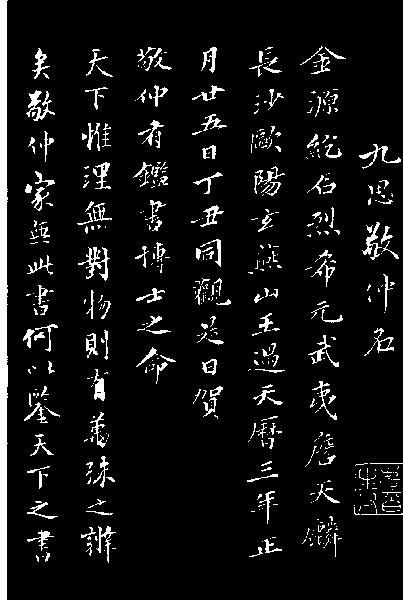 九思敬仲名
金源紇石烈希元武夷詹天麟
長沙歐陽玄燕山王遇天曆三年正
月廿五日丁丑同觀是日賀
敬仲有鑑書博士之命
天下惟理無對物則有萬殊之辨
矣敬仲家無此書何以鑒天下之書